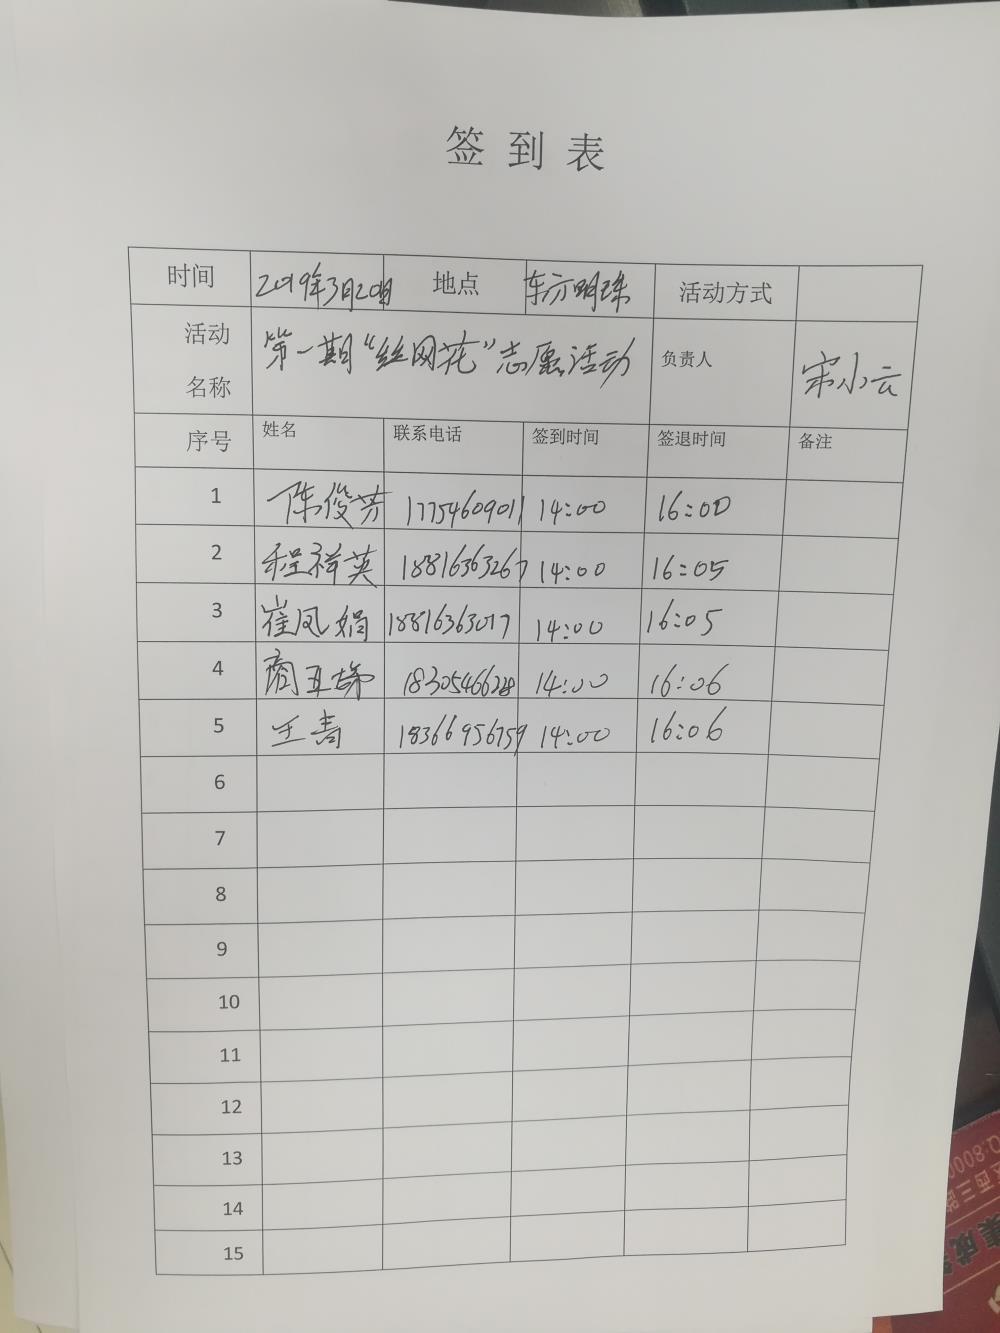 签到表
时间 2019年3月20日 地点 东方明珠 活动方式
活动名称 第一期“丝网花”志愿活动 负责人 宋小云
序号 姓名 联系电话 签到时间 签退时间 备注
1 陈俊芳 17754609011 14:00 16:00
2 程祥英 18816363267 14:00 16:05
3 崔凤娟 18816363017 14:00 16:05
4 商玉娣 18305466228 14:00 16:06
5 王青 18366956759 14:00 16:06
6
7
8
9
10
11
12
13
14
15
0:800
西三路
集成